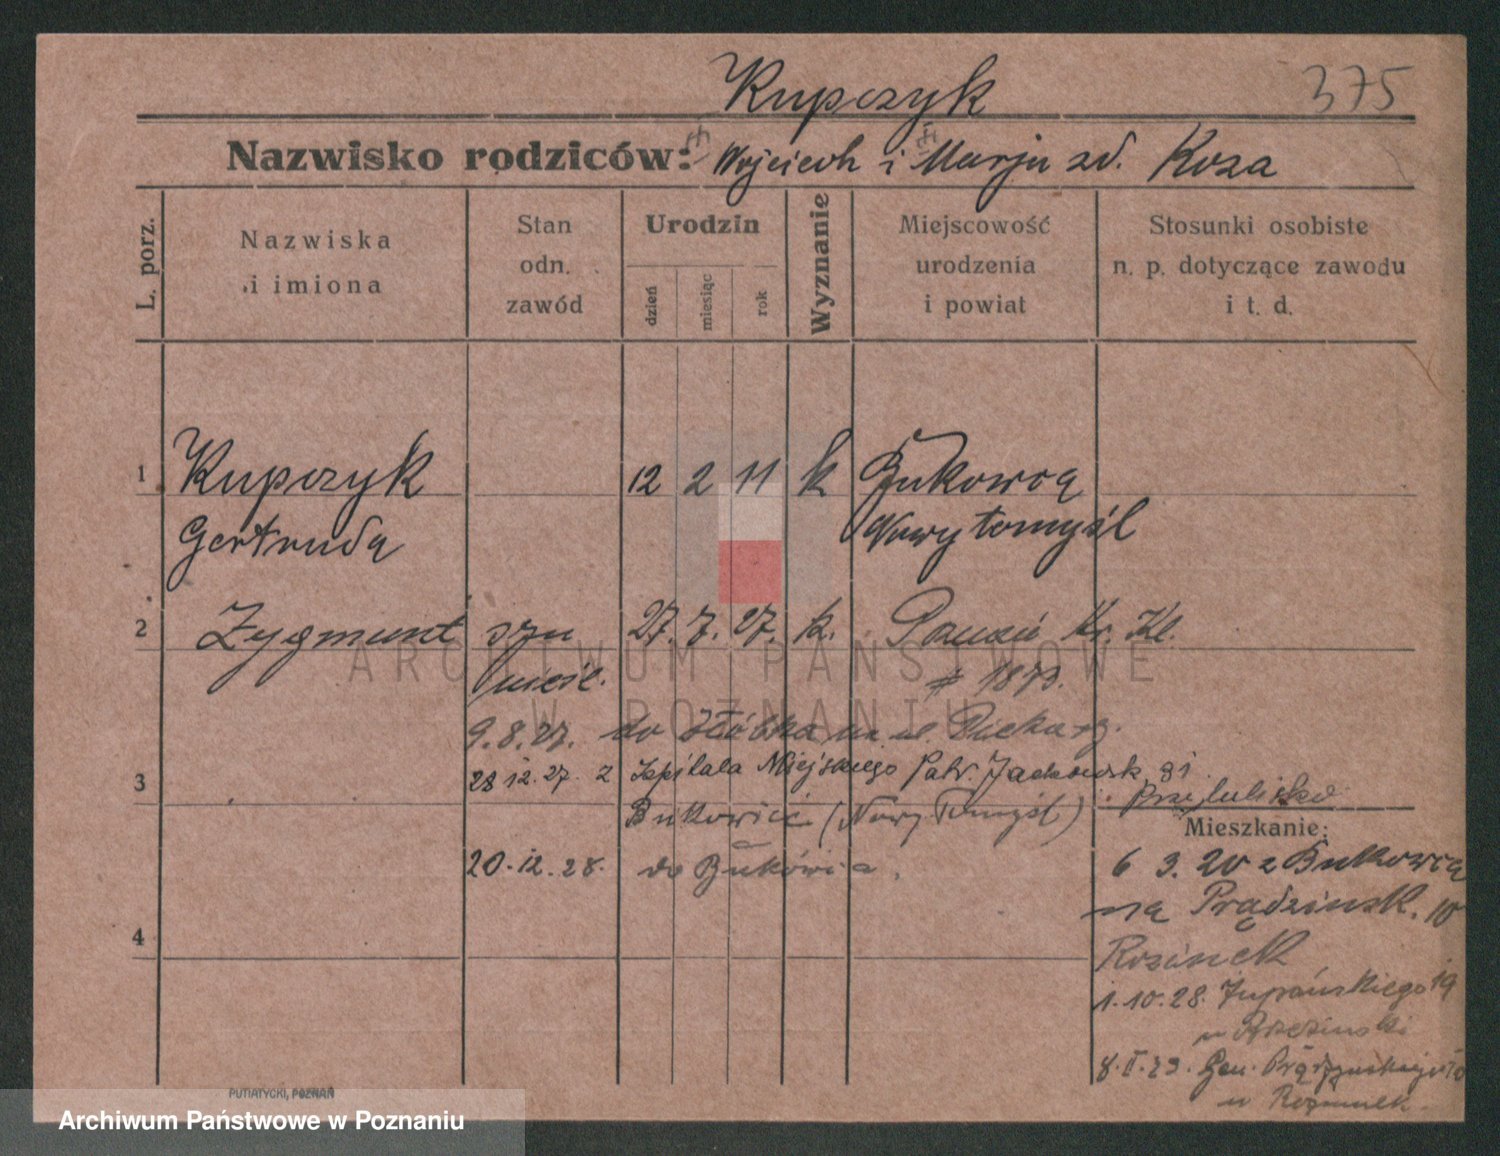 Kupczyk 375
Nazwisko rodziców: Wojciech i Marja zd. Koza
L. porz.
Nazwiska i imiona
Stan odn. zawód
Urodzin
dzień
miesiąc
rok
Wyznanie
Miejscowość urodzenia i powiat
Stosunki osobiste n. p. dotyczące zawodu i t. d.
1 Kupczyk 12 2 11 k Bukowca
Gertruda Nowytomyśl
2 Zygmunt syn 27. 7. 27. k. Poznań Kr. Kl.
nieśl. # 1879.
9.8.27. do Żłóbka na ul. Piekary.
3 28 12. 27. z Szpitala Miejskiego Patr. Jackowsk. 31.
Przytulisko
Bukowiec (Nowy Tomyśl)
Mieszkanie:
20.12.28. do
6 3. 20 z Bukowca
na Prądzinsk. 10
4
1.10.28. Żupańskiego 19
u Brzezinski
8.I.29. Gen. Prądzyńskiego 10
u
PUTIATYCKI, POZNAŃ
ARCHIWUM PAŃSTWOWE
W POZNANIU
Archiwum Państwowe w Poznaniu